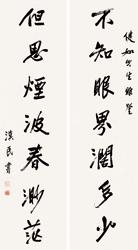 健如先生雅鉴
不知眼界闊多少
但思煙波春渺茫
漢民書